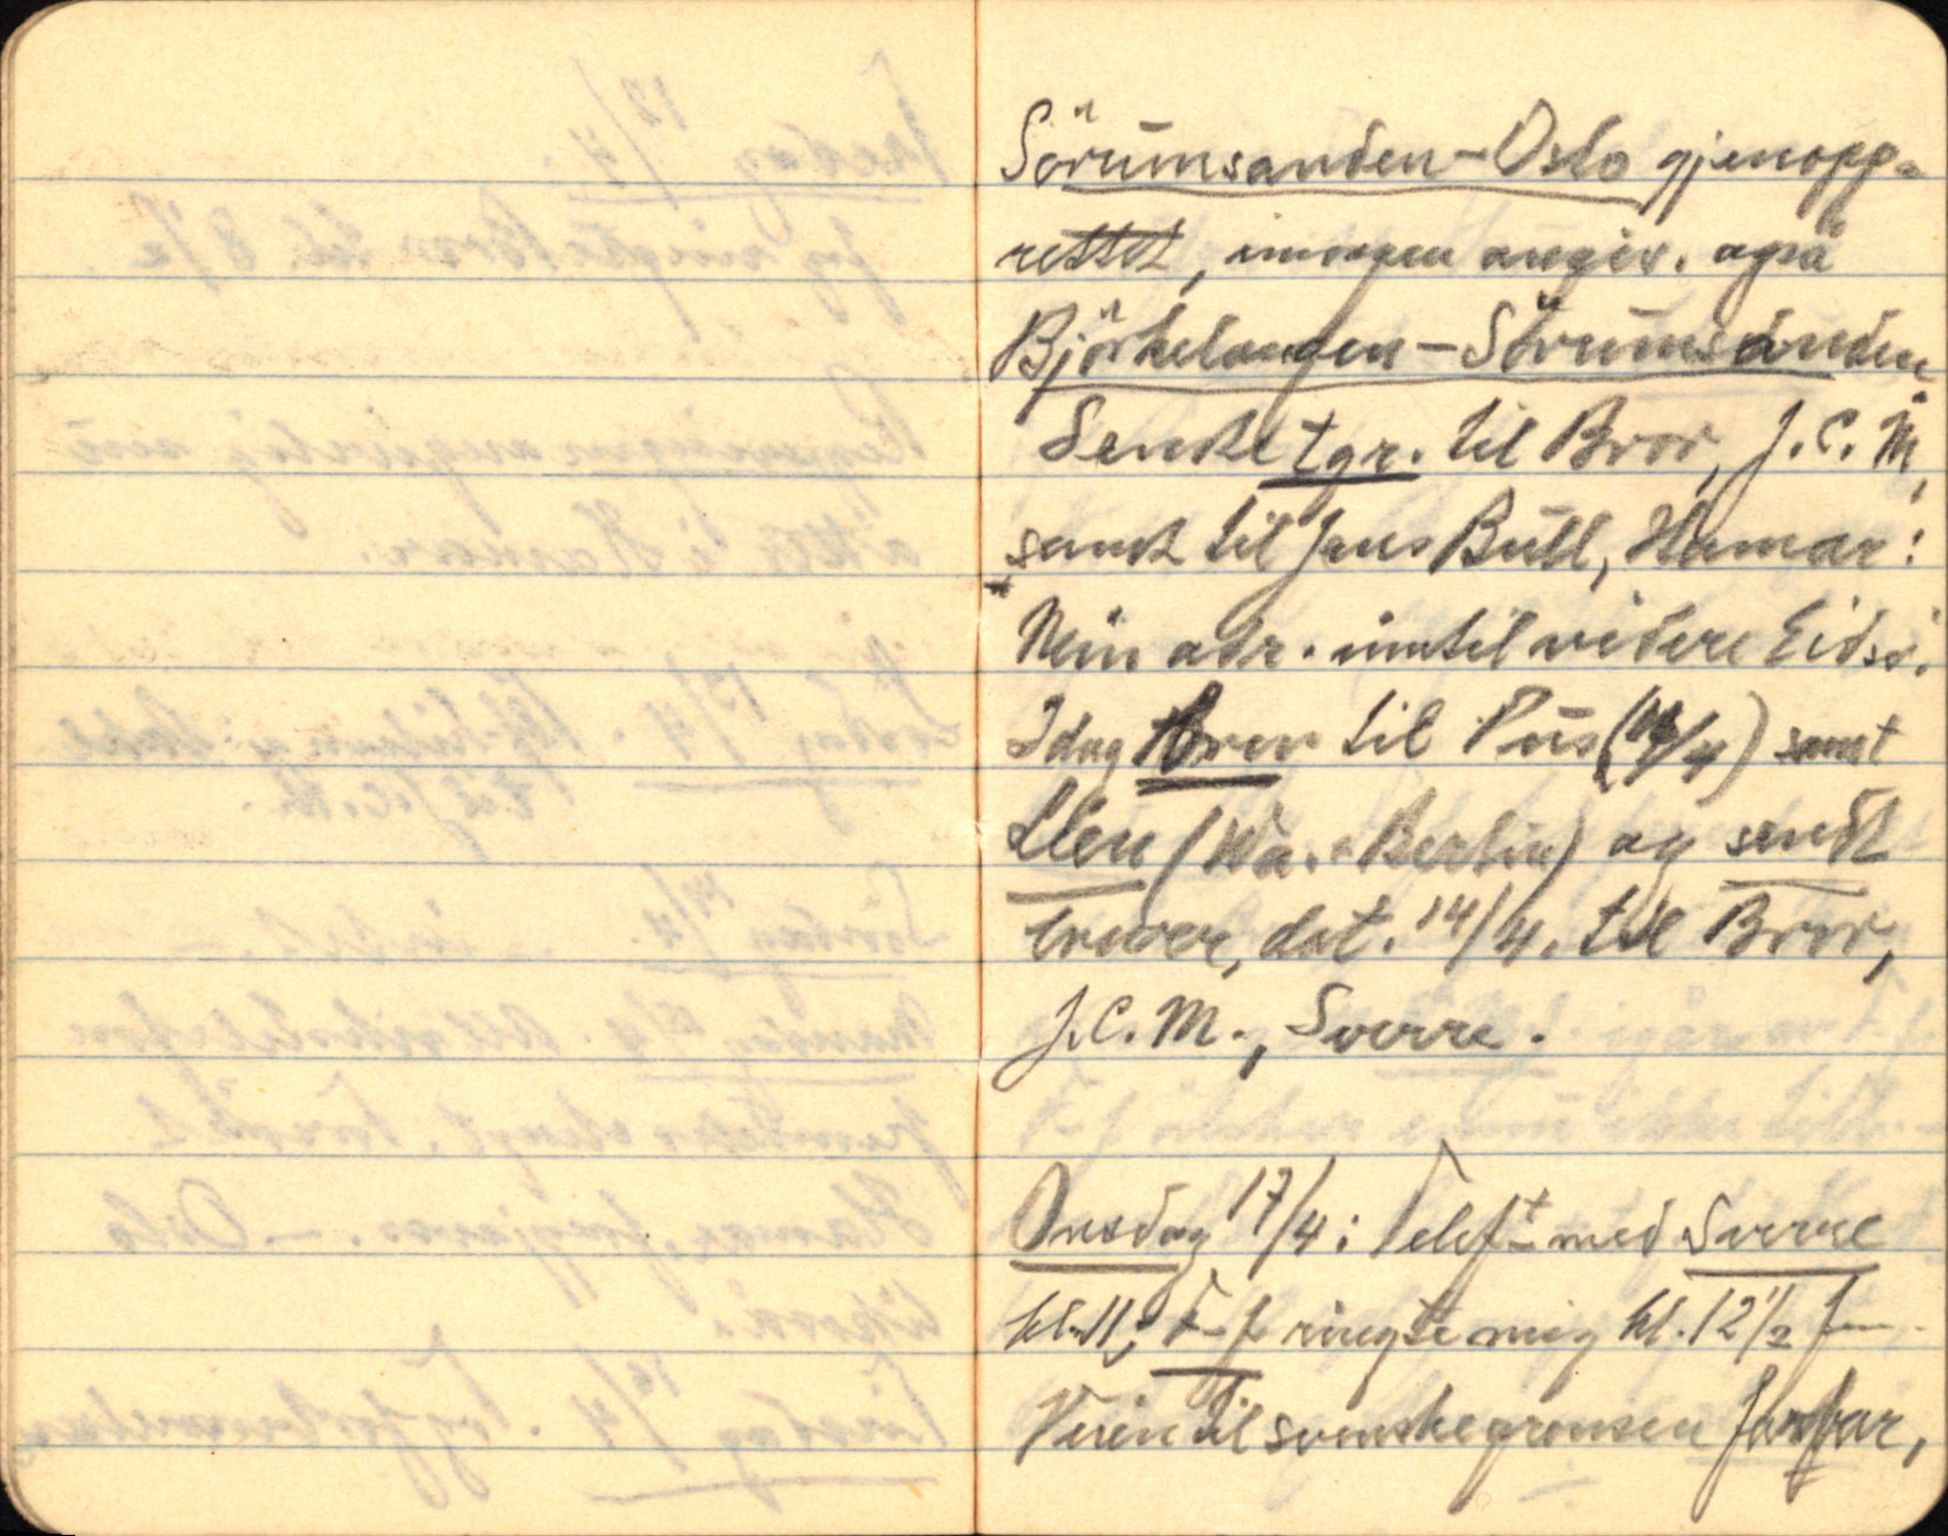 Sörumsanden - Oslo gjenopp-
rettet, imorgen angiv. også
Björkelangen - Sörumsanden.
Sendt tgr. til Bror, J.C.M.,
samt til Jens Bull, Hamar:
Min adr. inntil videre Eidsv.
Idag brev til Pus (14/4) samt
Ellen (Wa. + Berlin) og sendt
brever, dat. 14/4. til Bror,
J.C.M., Sverre.
Onsdag 17/4: Telef. med Sverre
kl. 11, F-f ringte mig kl. 12 1/2
Veien til svenskegrensen farbar,